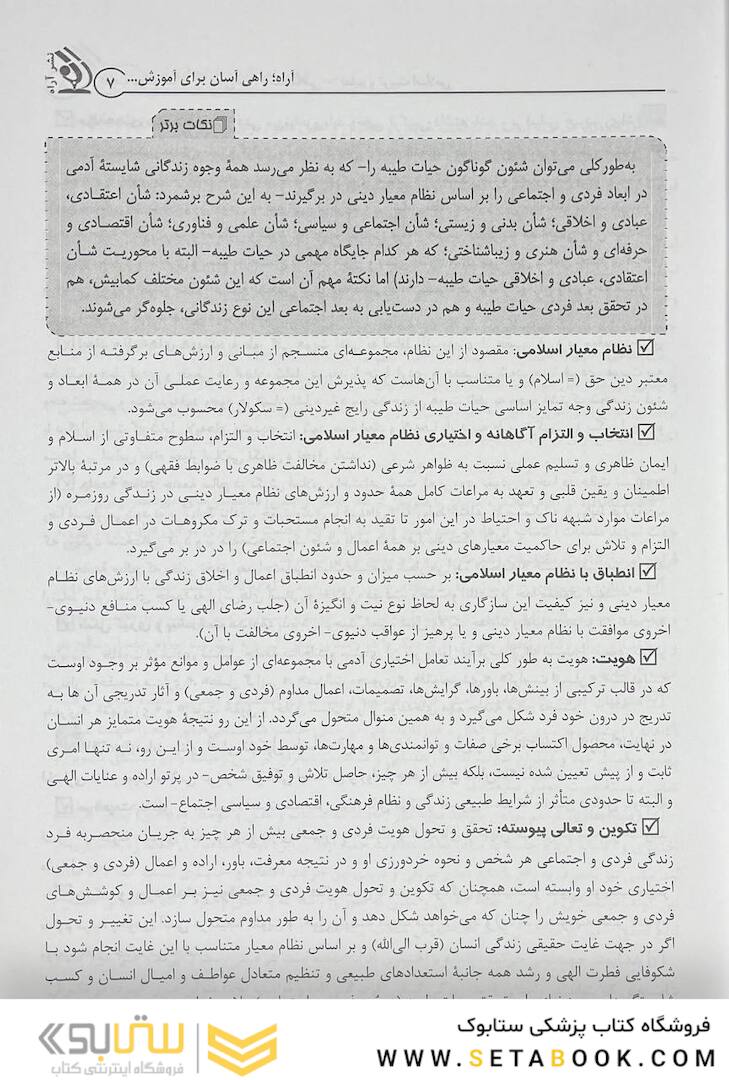 نشر آراه
۷
آراه؛ راهی آسان برای آموزش...
نکات برتر
به‌طورکلی می‌توان شئون گوناگون حیات طیبه را- که به نظر می‌رسد همهٔ وجوه زندگانی شایستهٔ آدمی
در ابعاد فردی و اجتماعی را بر اساس نظام معیار دینی در برگیرند- به این شرح برشمرد: شأن اعتقادی،
عبادی و اخلاقی؛ شأن بدنی و زیستی؛ شأن اجتماعی و سیاسی؛ شأن علمی و فناوری؛ شأن اقتصادی و
حرفه‌ای و شأن هنری و زیباشناختی؛ که هر کدام جایگاه مهمی در حیات طیبه- البته با محوریت شـأن
اعتقادی، عبادی و اخلاقی حیات طیبه- دارند) اما نکتهٔ مهم آن است که این شئون مختلف کمابیش، هم
در تحقق بعد فردی حیات طیبه و هم در دست‌یابی به بعد اجتماعی این نوع زندگانی، جلوه‌گر می‌شوند.
☑ نظام معیار اسلامی: مقصود از این نظام، مجموعه‌ای منسجم از مبانی و ارزش‌های برگرفته از منابع
معتبر دین حق (= اسلام) و یا متناسب با آن‌هاست که پذیرش این مجموعه و رعایت عملـی آن در همهٔ ابعاد و
شئون زندگی وجه تمایز اساسی حیات طیبه از زندگی رایج غیردینی (= سکولار) محسوب می‌شود.
☑ انتخاب و التزام آگاهانه و اختیاری نظام معیار اسلامی: انتخاب و التزام، سطوح متفـاوتی از اسـلام و
ایمان ظاهری و تسلیم عملی نسبت به ظواهر شرعی (نداشتن مخالفت ظاهری با ضوابط فقهی) و در مرتبهٔ بالاتر
اطمینان و یقین قلبی و تعهد به مراعات کامل همهٔ حدود و ارزش‌های نظام معیـار دینـی در زنـدگی روزمـره (از
مراعات موارد شبهه ناک و احتیاط در این امور تا تقید به انجام مستحبات و ترک مکروهـات در اعمـال فـردی و
التزام و تلاش برای حاکمیت معیارهای دینی بر همهٔ اعمال و شئون اجتماعی) را در در بر می‌گیرد.
☑ انطباق با نظام معیار اسلامی: بر حسب میزان و حدود انطباق اعمال و اخلاق زندگی با ارزش‌های نظـام
معیار دینی و نیز کیفیت این سازگاری به لحاظ نوع نیت و انگیزهٔ آن (جلب رضای الهی یا کسب منـافع دنیـوی-
اخروی موافقت با نظام معیار دینی و یا پرهیز از عواقب دنیوی- اخروی مخالفت با آن).
☑ هویت: هویت به طور کلی برآیند تعامل اختیاری آدمی با مجموعه‌ای از عوامل و موانع مؤثر بر وجـود اوسـت
که در قالب ترکیبی از بینش‌ها، باورها، گرایش‌ها، تصمیمات، اعمال مداوم (فردی و جمعی) و آثار تدریجی آن ها بـه
تدریج در درون خود فرد شکل می‌گیرد و به همین منوال متحول می‌گردد. از این رو نتیجهٔ هویت متمایز هر انسـان
در نهایت، محصول اکتساب برخی صفات و توانمندی‌ها و مهارت‌ها، توسط خود اوسـت و از ایـن رو، نـه تنهـا امـری
ثابت و از پیش تعیین شده نیست، بلکه بیش از هر چیز، حاصل تلاش و توفیق شخص- در پرتو اراده و عنایات الهـی
و البته تا حدودی متأثر از شرایط طبیعی زندگی و نظام فرهنگی، اقتصادی و سیاسی اجتماع- است.
☑ تکوین و تعالی پیوسته: تحقق و تحول هویت فردی و جمعی بیش از هر چیز به جریان منحصربه فـرد
زندگی فردی و اجتماعی هر شخص و نحوه خردورزی او و در نتیجه معرفت، باور، اراده و اعمال (فردی و جمعی)
اختیاری خود او وابسته است، همچنان که تکوین و تحول هویت فردی و جمعی نیـز بـر اعمـال و کوشـش‌هـای
فردی و جمعی خویش را چنان که می‌خواهد شکل دهد و آن را به طور مداوم متحول سازد. این تغییـر و تحـول
اگر در جهت غایت حقیقی زندگی انسان (قرب الی‌الله) و بر اساس نظام معیار متناسب با این غایت انجام شود بـا
شکوفایی فطرت الهی و رشد همه جانبهٔ استعدادهای طبیعی و تنظیم متعادل عواطـف و امیـال انسـان و کسـب
فروشگاه کتاب پزشکی ستابوک
WWW.SETABOOK.COM
ستابوک
فروشگاه اینترنتی کتاب